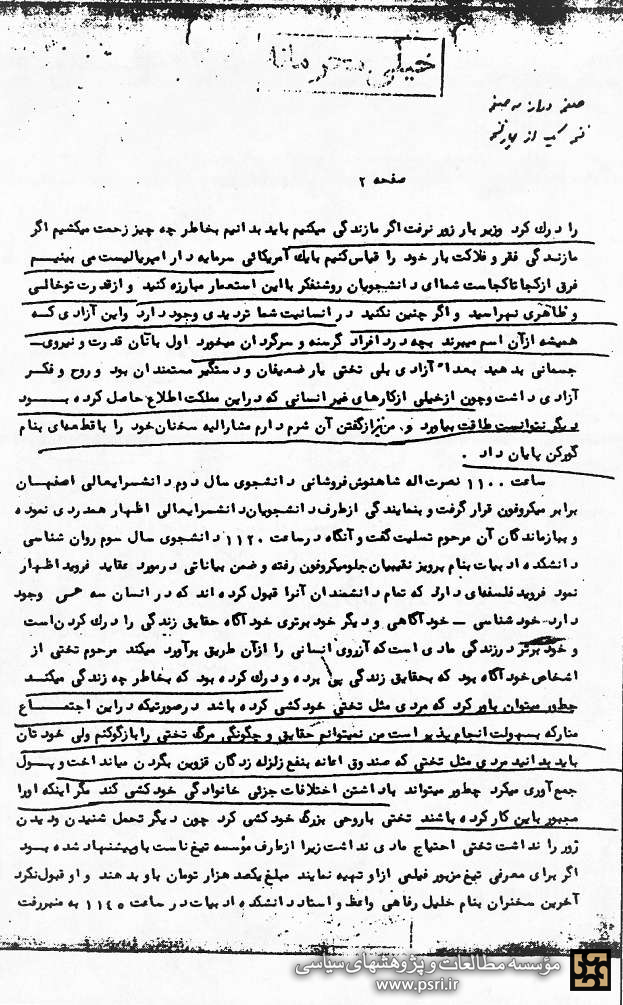 خیلی محرمانه
صفحه ۲
را درك كرد وزیر بار زور نرفت اگر مازندگی میكنیم باید بدانیم بخاطر چه چیز زحمت میكشیم اگر
مازندگی فقر و فلاكت بار خود را قیاس كنیم بایك آمریكائی سرمایه دار امپریالیست می بینیم
فرق ازكجا تاكجاست شماای دانشجویان روشنفكر بااین استعمار مبارزه كنید و ازقدرت توخالی
و ظاهری نهراسید و اگر چنین نكنید در انسانیت شما تردیدی وجود دارد واین آزادی كه
همیشه ازآن اسم میبرند بچه درد افراد گرسنه و سرگردان میخورد اول باآنان قدرت و نیروی
جسمانی بدهید بعدا" آزادی بلی تختی یار ضعیفان و دستگیر مستمندان بود و روح و فكر
آزادی داشت وچون ازخیلی ازكارهای غیر انسانی كه دراین مملكت اطلاع حاصل كرده بود
دیگر نتوانست طاقت بیاورد و من نیز ازگفتن آن شرم دارم مشارالیه سخنان خود را باقطعهای بنام
گوركن پایان داد .
ساعت ۱۱۰۰ نصرت اله شاهنوش فروشانی دانشجوی سال دوم دانشسرایعالی اصفهان
برابر میكروفون قرار گرفت و بنمایندگی ازطرف دانشجویان دانشسرایعالی اظهار همدردی نموده
و ببازماندگان آن مرحوم تسلیت گفت و آنگاه درساعت ۱۱۲۰ دانشجوی سال سوم روان شناسی
دانشكده ادبیات بنام پرویز نقیبیان جلومیكروفون رفته و ضمن بیاناتی درمورد عقاید فروید اظهار
نمود فروید فلسفهای دارد كه تمام دانشمندان آنرا قبول كرده اند كه در انسان سه حس وجود
دارد خود شناسی – خودآگاهی و دیگر خود برتری خودآگاه حقایق زندگی را درك كردن است
و خود برتر درزندگی مادی است كه آرزوی انسانی را ازآن طریق برآورد میكند مرحوم تختی از
اشخاص خودآگاه بود كه بحقایق زندگی پی برده و درك كرده بود كه بخاطر چه زندگی میكند
چطور میتوان باور كرد كه مردی مثل تختی خودكشی كرده باشد درصورتیكه دراین اجتماع
متاركه بسهولت انجام پذیر است من نمیتوانم حقایق و چگونگی مرگ تختی را بازگوكنم ولی خودتان
باید بدانید مردی مثل تختی كه صندوق اعانه بنفع زلزله زدگان قزوین بگردن میانداخت و پول
جمع آوری میكرد چطور میتواند باداشتن اختلافات جزئی خانوادگی خودكشی كند مگر اینكه اورا
مجبور باین كار كرده باشند تختی باروحی بزرگ خودكشی كرد چون دیگر تحمل شنیدن و دیدن
زور را نداشت تختی احتیاج مادی نداشت زیرا ازطرف مؤسسه تیغ ناست باو پیشنهاد شده بود
اگر برای معرفی تیغ مزبور فیلمی ازاو تهیه نمایند مبلغ یكصد هزار تومان باو بدهند و او قبول نكرد
آخرین سخنران بنام خلیل رفاهی واعظ و استاد دانشكده ادبیات در ساعت ۱۱۴۵ به منبر رفت
مؤسسه مطالعات و پژوهشهای سیاسی
www.psri.ir